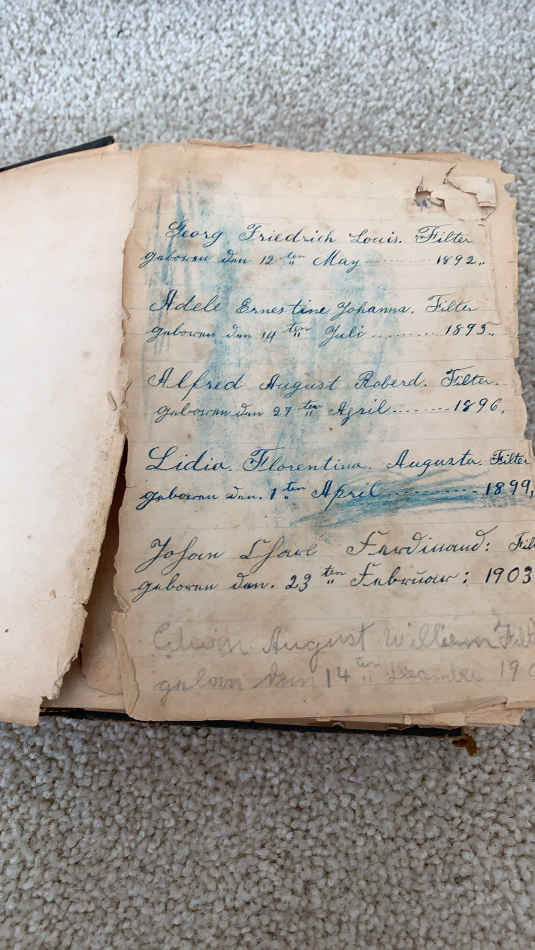 Georg Friedrich Louis. Filter
geboren den 12 ten May 1892.
Adele Ernestine Johanna. Filter
geboren den 14 ten Juli 1895.
Alfred August Roberd. Filter.
geboren den 27 ten April 1896.
Lidia. Florentina. Augusta. Filter
geboren den. 1 ten April 1899,
Johan Ferdinand: Filt
geboren den. 23 ten Februar: 1903
Edwin August William Filt
geboren den 14 ten Dezember 19